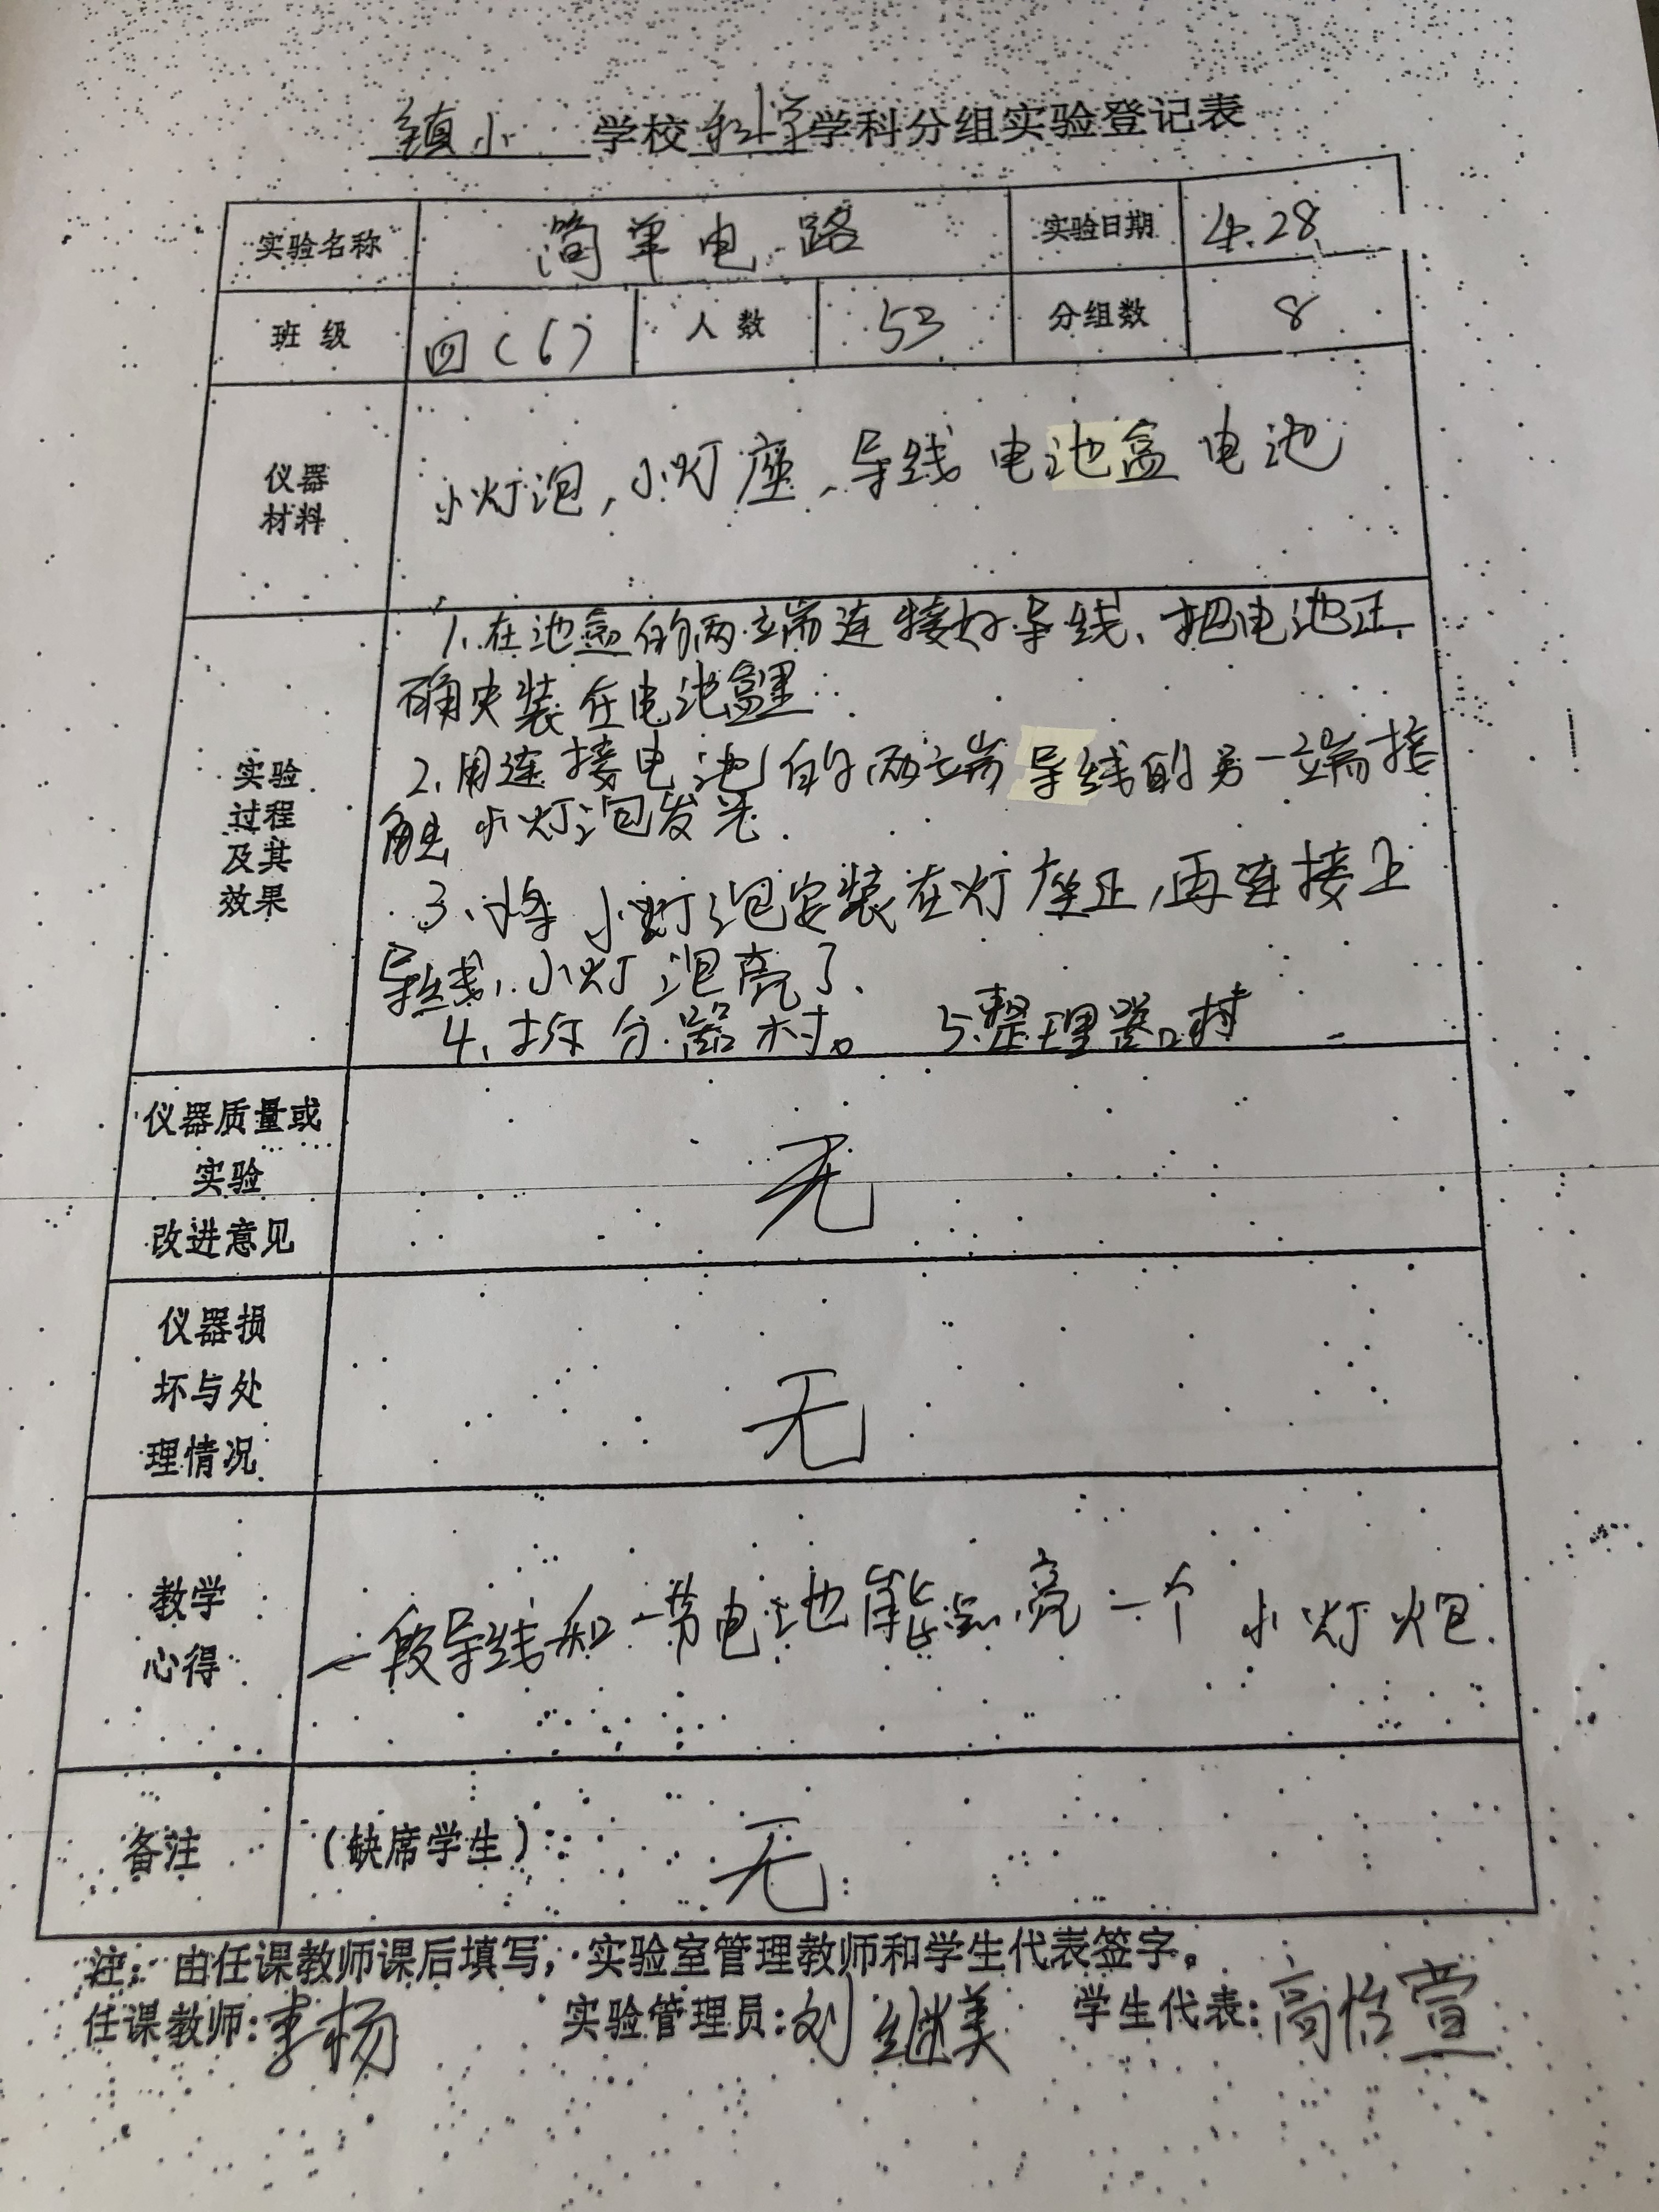 镇小 学校 科学 学科分组实验登记表
实验名称 简单电路 实验日期 4.28
班级 四(6) 人数 53 分组数 8
仪器
材料
小灯泡,小灯座、导线 电池盒 电池
1、在池盒的两端连接好导线、把电池正
确安装在电池盒里
2、用连接电池的两端导线的另一端接
触小灯泡发光.
3、将小灯泡安装在灯座正,再连接上
导线,小灯泡亮了、
4、拆分器材。 5、整理器材
实验
过程
及其
效果
仪器质量或
实验
改进意见
无
仪器损
坏与处
理情况
无
教学
心得
一段导线和一节电池能点亮一个小灯炮.
备注 (缺席学生): 无
注:由任课教师课后填写,实验室管理教师和学生代表签字。
任课教师:李杨 实验管理员:刘继美 学生代表:高怡萱